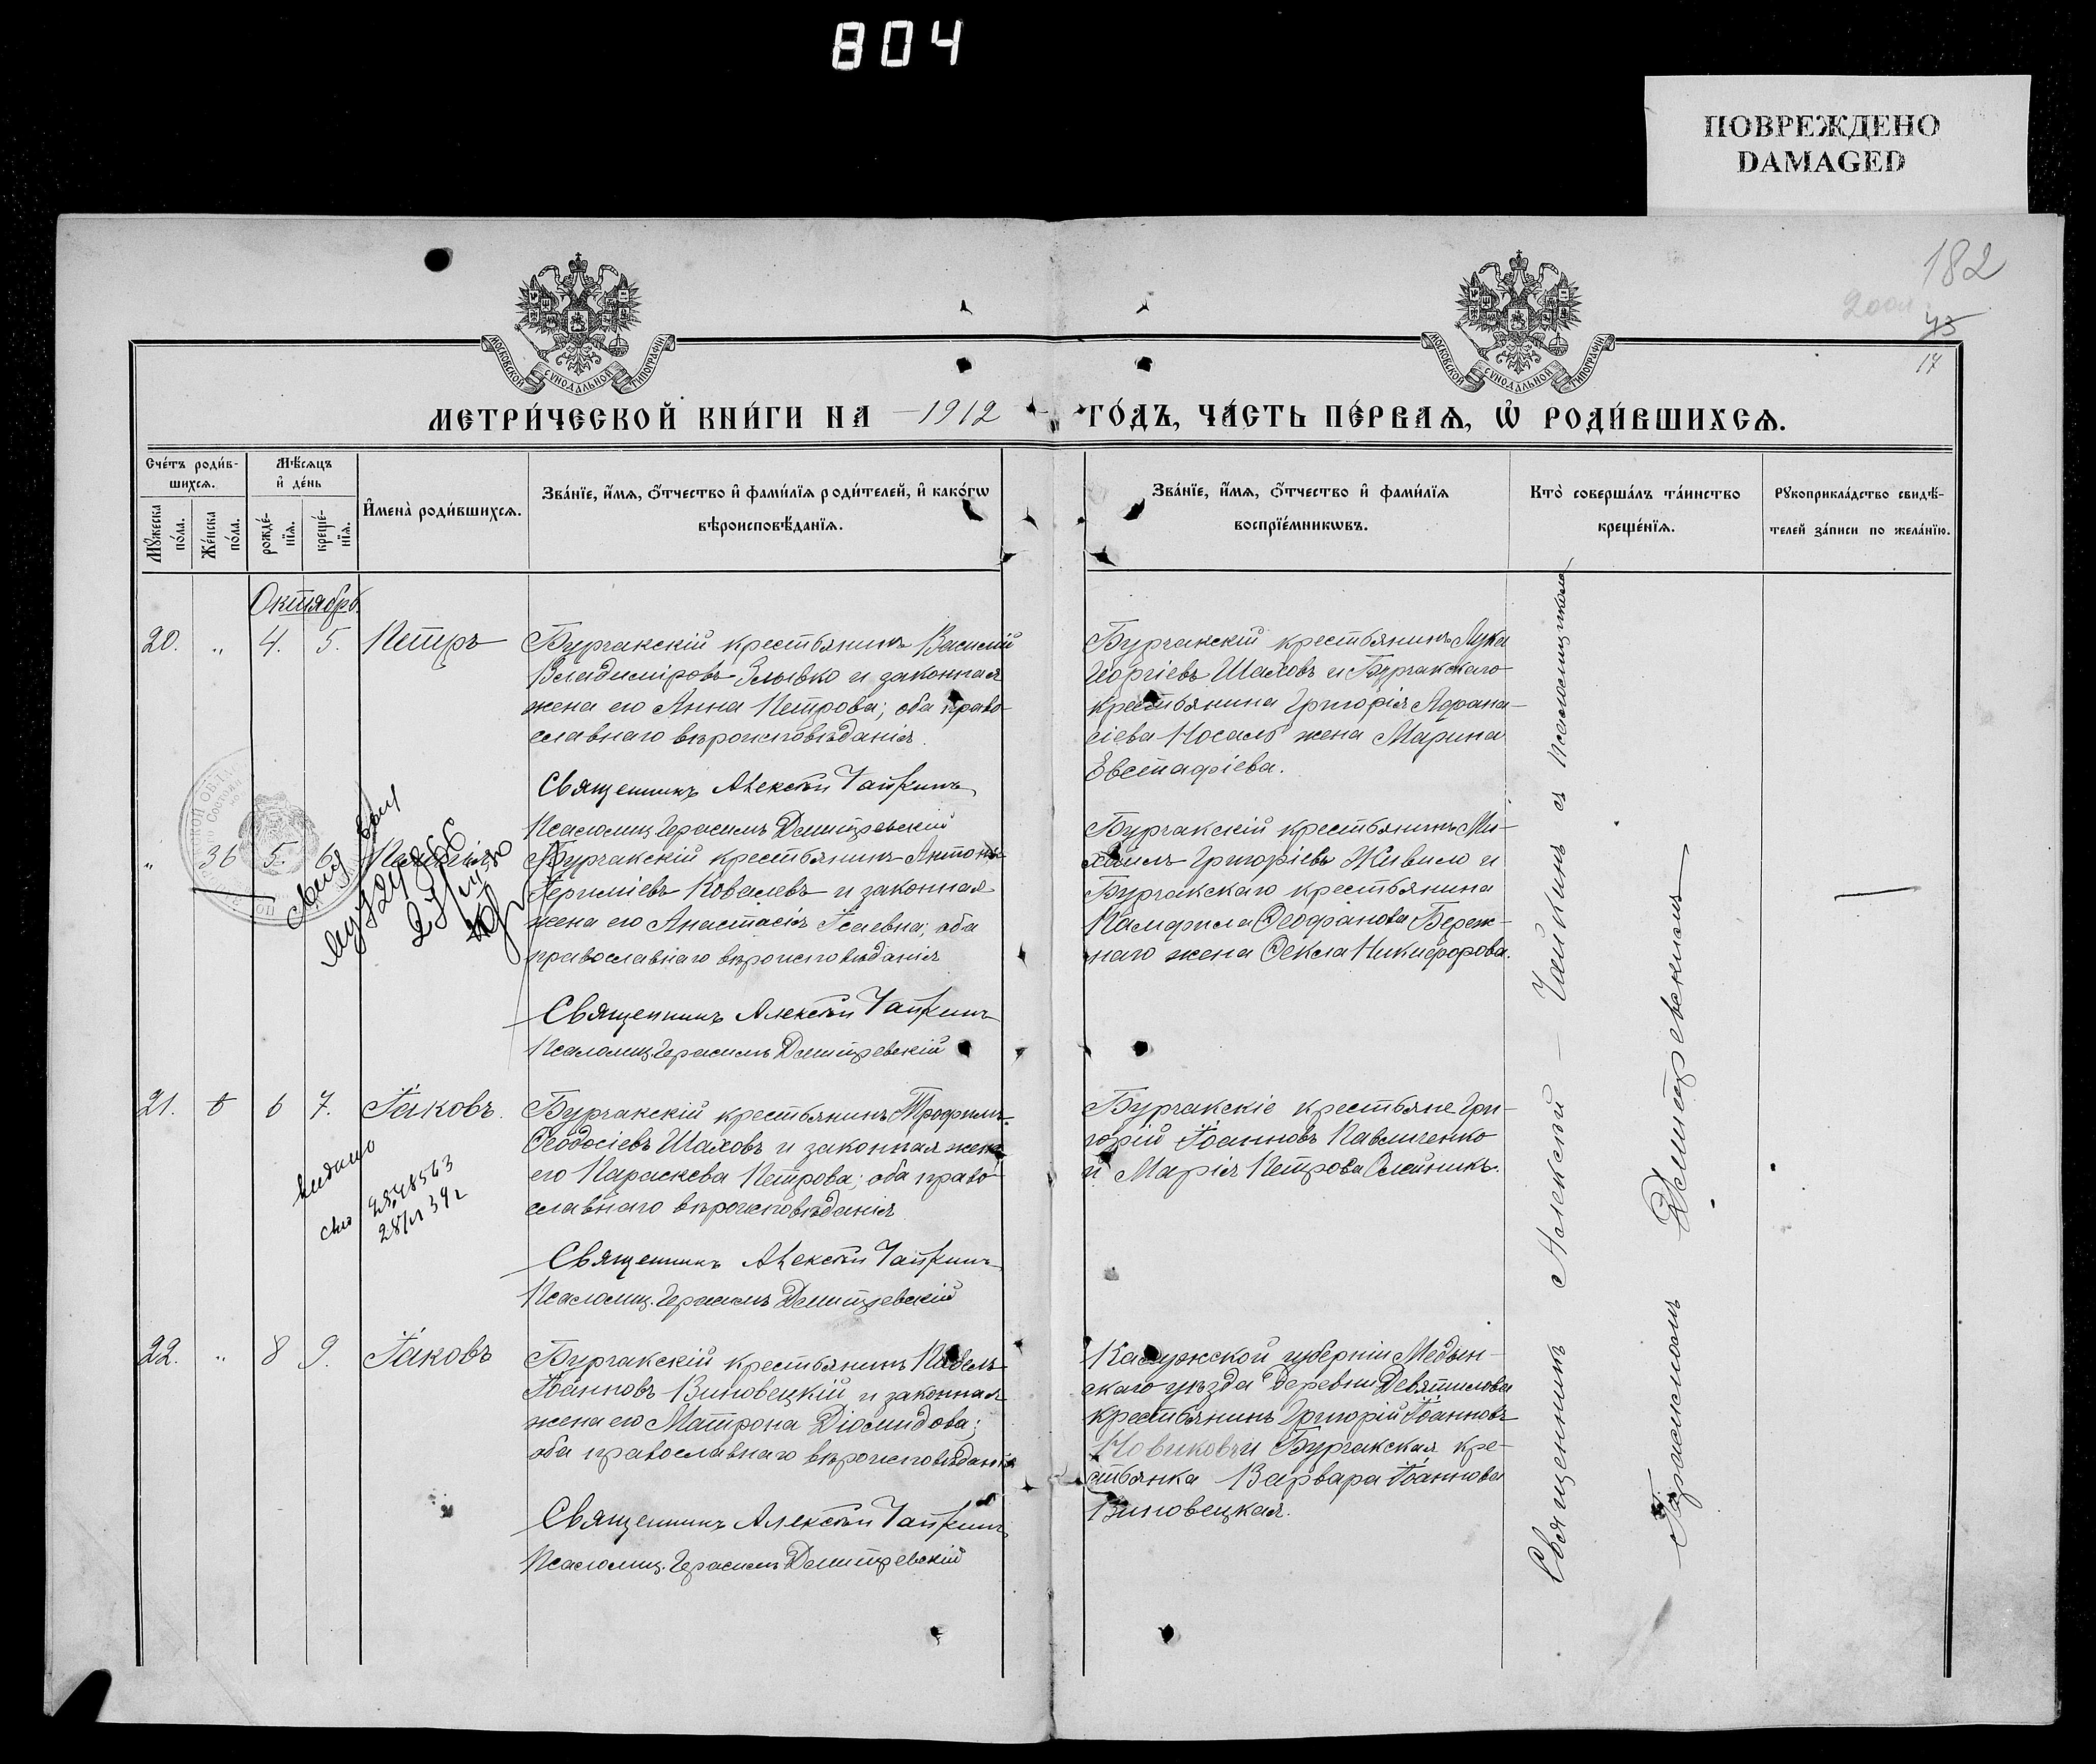 804
ПОВРЕЖДЕНО
DAMAGED
182
43
17
МОСКОВСКОЙ СѴНОДАЛЬНОЙ ТИПОГРАФІИ
МОСКОВСКОЙ СѴНОДАЛЬНОЙ ТИПОГРАФІИ
МЕТРИ́ЧЕСКОЙ КНИ́ГИ НА 1912
ГО́ДЪ, ЧА́СТЬ ПЕ́РВАѦ, Ѽ РОДИ́ВШИХСѦ.
Сче́тъ роди́в-
шихсѧ.
Мѣ́сѧцъ
и҆ де́нь
Мꙋ́жеска
по́ла.
Же́нска
по́ла.
рожде́-
нїѧ.
креще́-
нїѧ.
И҆мена̀ роди́вшихсѧ.
Зва́нїе, и҆́мѧ, ѻ҆́тчество и҆ фами́лїѧ роди́телей, и҆ како́гѡ
вѣроисповѣ́данїѧ.
Зва́нїе, и҆́мѧ, ѻ҆́тчество и҆ фами́лїѧ
воспрїе́мникѡвъ.
Кто̀ соверша́лъ та́инство
креще́нїѧ.
Рꙋкоприкла́дство свидѣ́-
телей за́писи по жела́нїю.
Октябрь.
20. „ 4. 5. Петръ
Бургакскій крестьянинъ Василій
Владиміровъ и законная
жена его Анна Петрова; оба право-
славнаго вѣроисповѣданія.
Священникъ Алексѣй Чайкинъ
Псаломщ. Герасимъ Демитревскій
Бургакскій крестьянинъ Лука
Георгіевъ Шаховъ и Бургакскаго
крестьянина Григорія Афана-
сіева Носаль жена Марина
Евстафіева.
„ 36 5. 6.
Бургакскій крестьянинъ Антонъ
Ковалевъ и законная
жена его Анастасія Исаевна; оба
православнаго вѣроисповѣданія
Священникъ Алексѣй Чайкинъ
Псаломщ. Герасимъ Демитревскій
Бургакскій крестьянинъ Ми-
хаилъ Григоріевъ Живило и
Бургакскаго крестьянина
Памфила Ѳеофанова Береж-
наго жена Ѳекла Никифорова.
21. 6 7. Іаковъ.
Бургакскій крестьянинъ Трофимъ
Ѳеодосіевъ Шаховъ и законная жена
его Параскева Петрова; оба право-
славнаго вѣроисповѣданія
Священникъ Алексѣй Чайкинъ
Псаломщ. Герасимъ Демитревскій
Бургакскіе крестьяне Гри-
горій Іоанновъ Павличенко
и Марія Петрова Олейникъ.
22. „ 8 9. Іаковъ
Бургакскій крестьянинъ Павелъ
Іоанновъ Виновецкій и законная
жена его Матрона Діомидова;
оба православнаго вѣроисповѣданія
Священникъ Алексѣй Чайкинъ
Псаломщ. Герасимъ Демитревскій
Калужской губерніи Медын-
скаго уѣзда деревни Девятилова
крестьянинъ Григорій Іоанновъ
Новиковъ и Бургакская кре-
стьянка Варвара Іоаннова
Виновецкая.
Священникъ Алексѣй Чайкинъ и псаломщикомъ
Герасимомъ Демитревскимъ